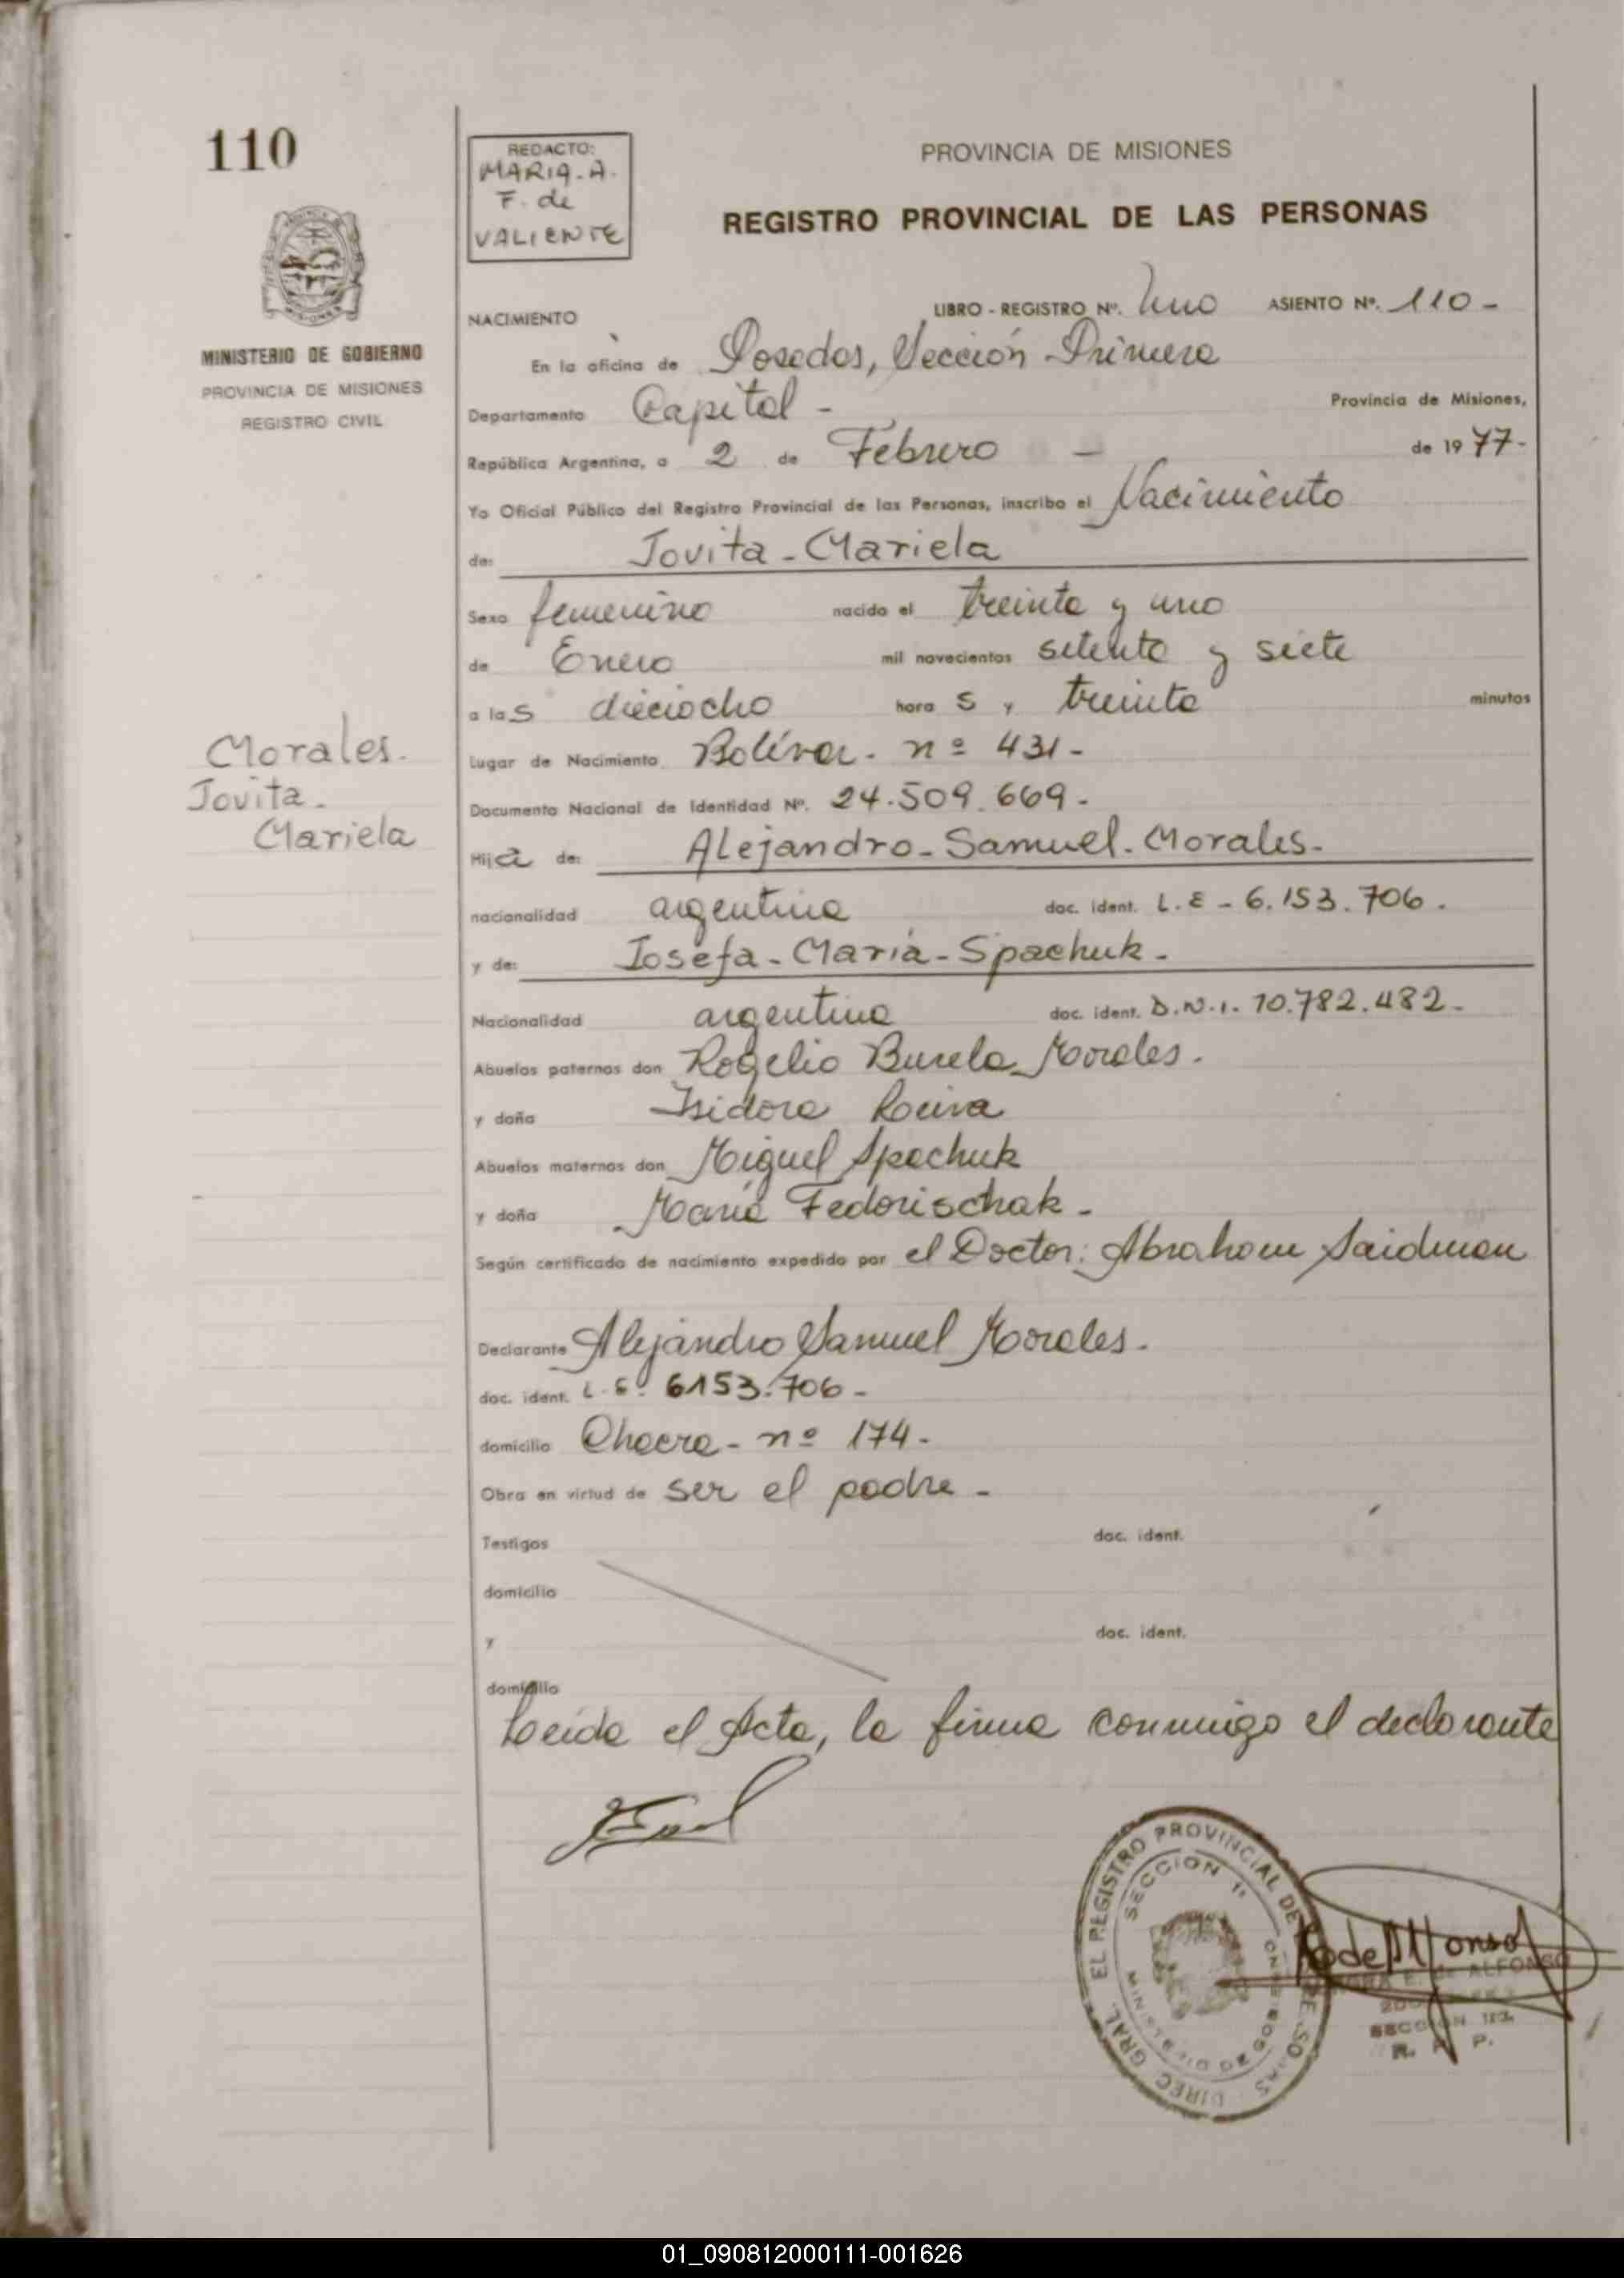 110
REDACTO:
MARIA. A.
F. de
VALIENTE
PROVINCIA DE MISIONES
REGISTRO PROVINCIAL DE LAS PERSONAS
MINISTERIO DE GOBIERNO
PROVINCIA DE MISIONES
REGISTRO CIVIL
NACIMIENTO
LIBRO - REGISTRO Nº. Uno ASIENTO Nº. 110 -
En la oficina de Posadas, Sección Primera
Departamento Capital - Provincia de Misiones,
República Argentina, a 2 de Febrero - de 1977-
Yo Oficial Público del Registro Provincial de las Personas, inscribo el Nacimiento
de: Jovita - Mariela
Sexo femenino nacido el treinta y uno
de Enero mil novecientos setenta y siete
a las dieciocho horas y treinta minutos
Morales.
Jovita.
Mariela
Lugar de Nacimiento Bolívar. nº 431-
Documento Nacional de Identidad Nº. 24.509.669-
Hija de: Alejandro - Samuel. Morales.
nacionalidad argentina doc. ident. L.E - 6.153.706.
y de: Josefa - María - Spachuk -
Nacionalidad argentina doc. ident. D.N.I. 10.782.482-
Abuelos paternos don Rogelio Morales.
y doña Isidora Leiva
Abuelos maternos don Miguel Spachuk
y doña María Fedorischak -
Según certificado de nacimiento expedido por el Doctor: Abraham Saidman
Declarante Alejandro Samuel Morales.
doc. ident. L.E. 6153.706-
domicilio Chacra - nº 174-
Obra en virtud de ser el padre -
Testigos doc. ident.
domicilio
y doc. ident.
domicilio
Leida el Acta, la firma conmigo el declarante
DIREC. GRAL. EL REGISTRO PROVINCIAL DE
SECCION 1ª
MINISTERIO DE GOBIERNO
E. de ALFONSO
SECCION 1ra.
R. P. P.
01_090812000111-001626